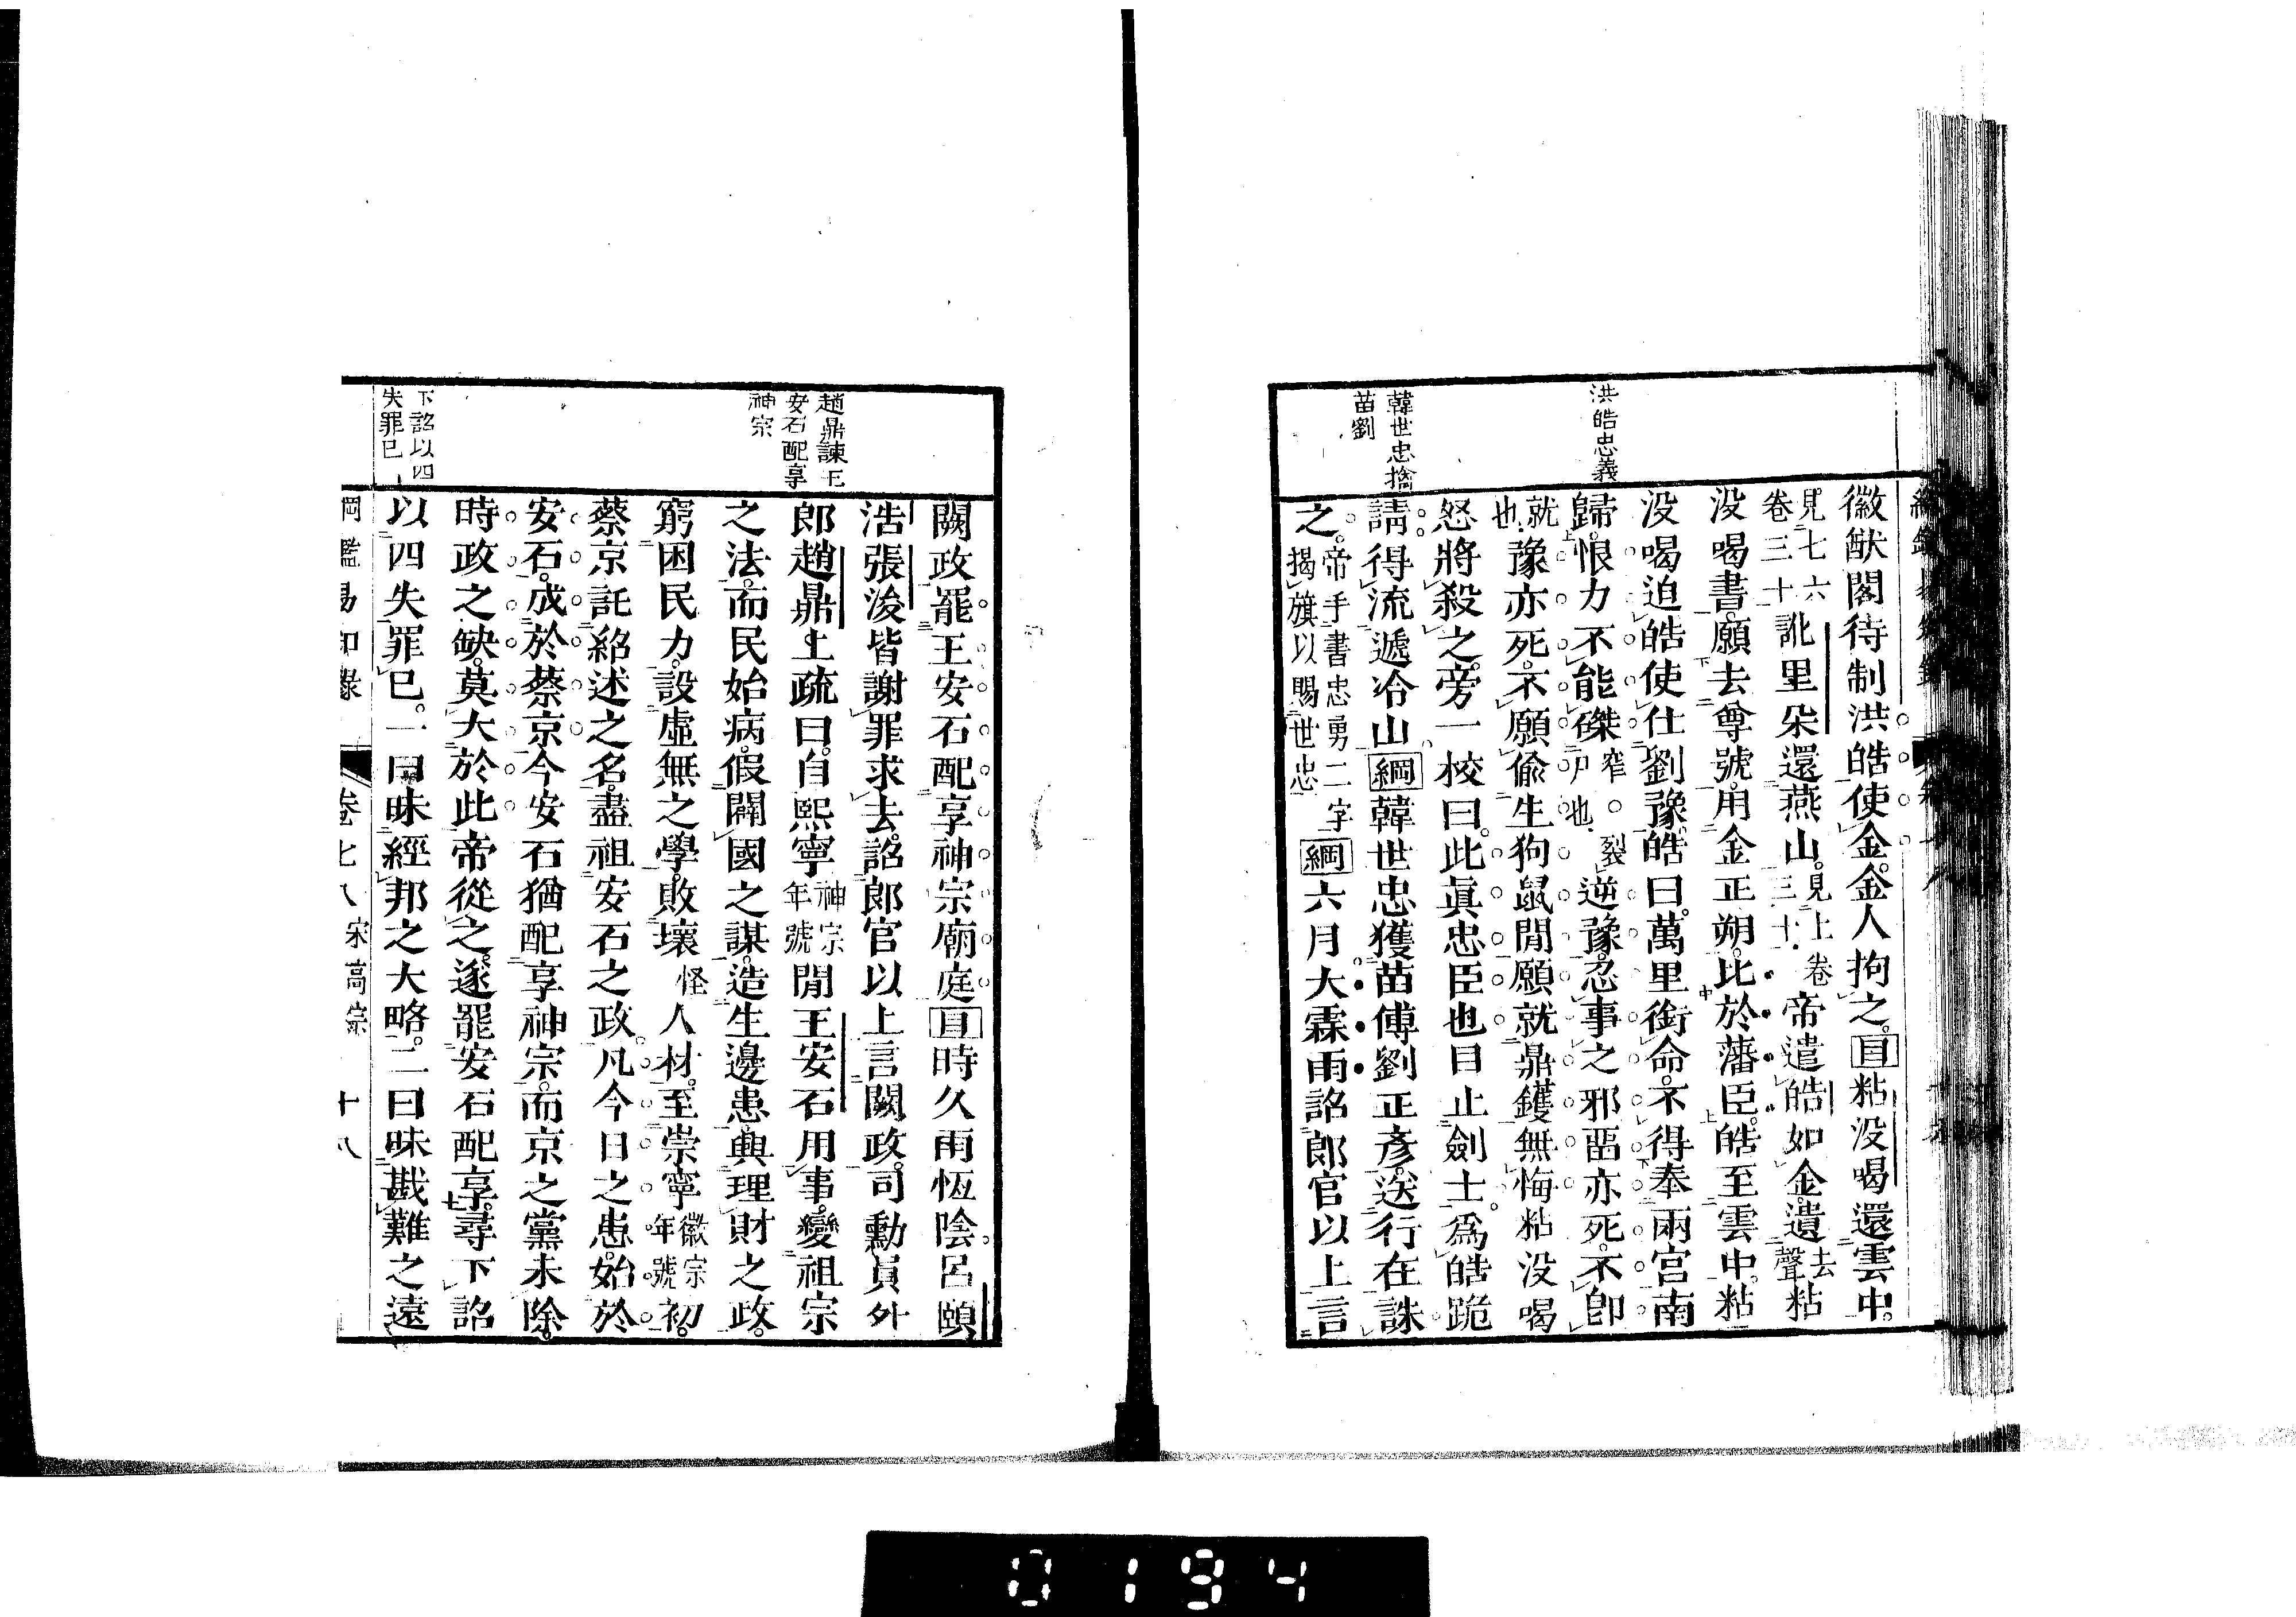 洪皓忠義
韓世忠擒
苗劉
徽猷閣待制洪皓使金金人拘之目粘没喝還雲中
見七六卷三十訛里朶還燕山見上卷三十帝遣皓如金遺去聲粘
没喝書願去尊號用金正朔比於藩臣皓至雲中粘
没喝迫皓使仕劉豫皓曰萬里銜命不得奉兩宮南
歸恨力不能磔窄○裂尸也逆豫忍事之邪畱亦死不卽
就也豫亦死不願偷生狗鼠閒願就鼎鑊無悔粘没喝
怒將殺之旁一校曰此眞忠臣也目止劍士爲皓跪
請得流遞冷山綱韓世忠獲苗傅劉正彥送行在誅
之帝手書忠勇二字揭旗以賜世忠綱六月大霖雨詔郎官以上言
趙鼎諫王
安石配享
神宗
下詔以四
失罪巳
闕政罷王安石配享神宗廟庭目時久雨恆陰呂頤
浩張浚皆謝罪求去詔郎官以上言闕政司勳員外
郎趙鼎上疏曰自熙寧神宗年號閒王安石用事變祖宗
之法而民始病假闢國之謀造生邊患興理財之政
窮困民力設虛無之學敗壞怪人材至崇寧徽宗年號初
蔡京託紹述之名盡祖安石之政凡今日之患始於
安石成於蔡京今安石猶配享神宗而京之黨未除
時政之缺莫大於此帝從之遂罷安石配享尋下詔
以四失罪巳一曰昧經邦之大略二曰昧戡難之遠
綱鑑易知錄 卷七八 宋高宗 十八
0194